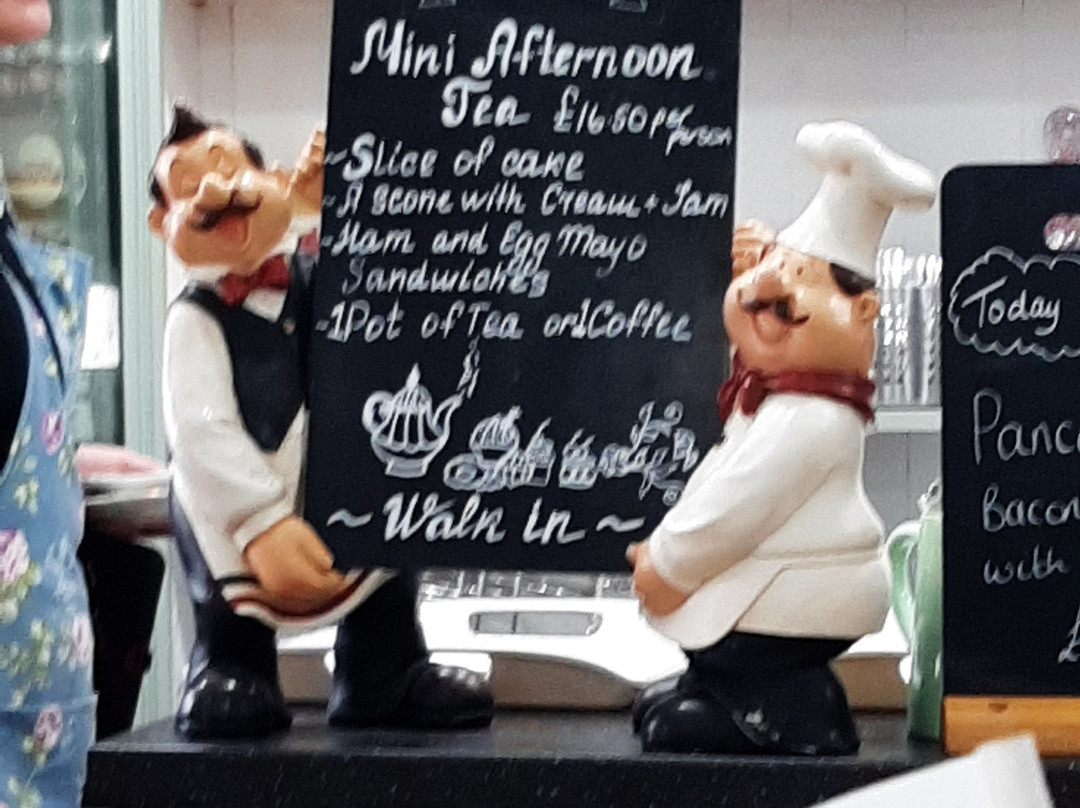 Mini Afternoon
Tea £16.50 per
person
~Slice of cake
-A scone with Cream + Jam
-Ham and Egg Mayo
Sandwiches
-1Pot of Tea or 1Coffee
~ Walk in ~
Today
Panc
Bacon
with
£